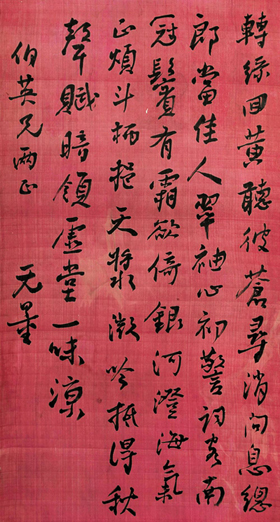 轉綠回黃聽彼蒼尋消問息總
郎當佳人翠袖心初警詞客南
冠鬢有霜欲倚銀河澄海氣
正煩斗柄挹天漿微吟抵得秋
聲賦暗領虛堂一味涼
伯英兄兩正 无量